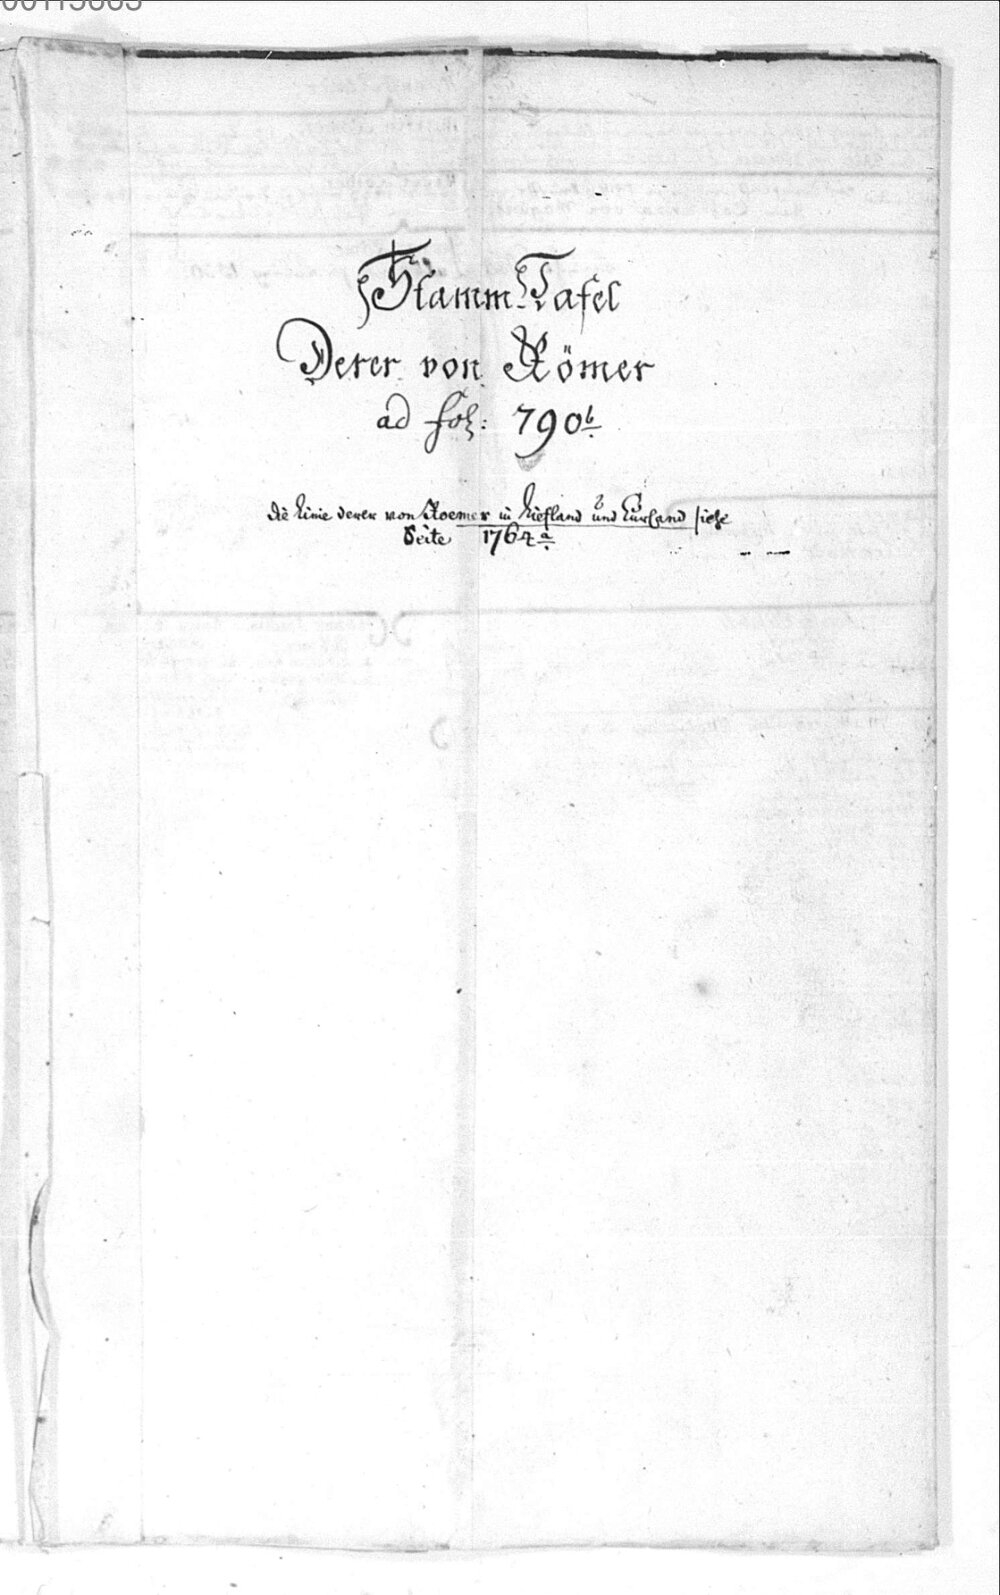 Stamm-Tafel
Derer von Römer
ad fol: 790b.
die Linie derer von Roemer in Liefland und Curland siehe
Seite 1764a.